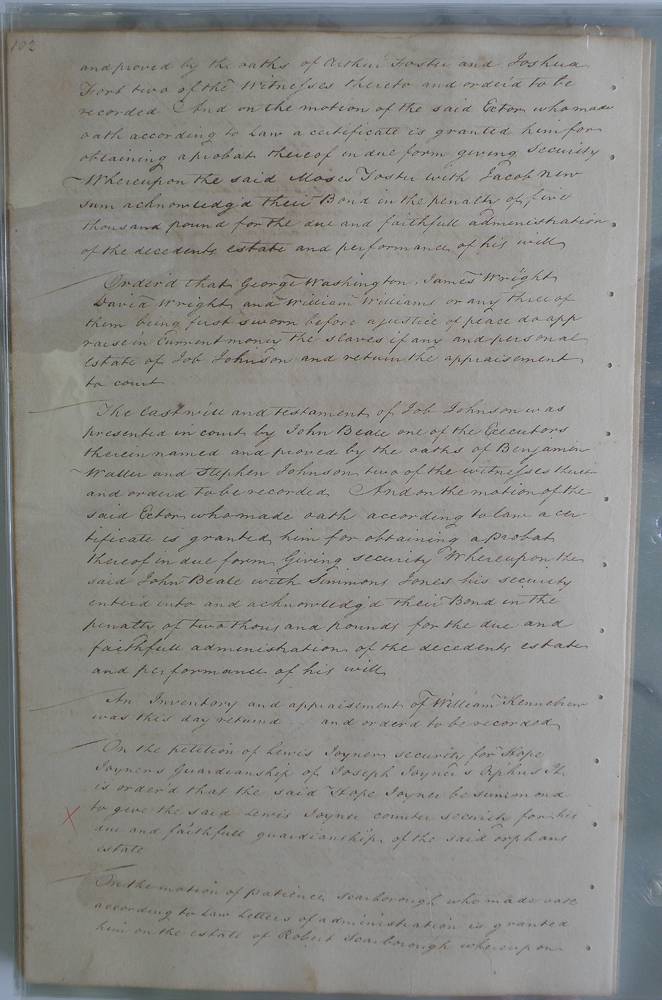 102
and proved by the oaths of Arthur Foster and Joshua
Fort two of the Witnesses thereto and order'd to be
recorded And on the motion of the said Ector who made
oath according to Law a certificate is granted him for
obtaining a probat thereof in due form giving Security
Whereupon the said Moses Foster with Jacob New
sum acknowledg'd their Bond in the penalty of five
thousand pound for the due and faithfull administration
of the decedents estate and performance of his will
Order'd that George Washington James Wright
David Wright and William Williams or any three of
them being first sworn before a justice of peace do app
raise in Current money the slaves if any and personal
estate of Job Johnson and return the appraisement
to court
The last will and testament of Job Johnson was
presented in court by John Beale one of the Executors
therein named and proved by the oaths of Benjamin
Waller and Stephen Johnson two of the witnesses there
and order'd to be recorded And on the motion of the
said Ector who made oath according to law a cer
tificate is granted him for obtaining a probat
thereof in due form Giving security Whereupon the
said John Beale with Simmons Jones his security
enter'd into and acknowledg'd their Bond in the
penalty of two thousand pounds for the due and
faithfull administration of the decedents estate
and performance of his will
An Inventory and appraisement of William Kennebrew
was this day returnd and order'd to be recorded
On the petition of Lewis Joyner security for Hope
Joyners Guardianship of Joseph Joyner's Orphus It
is order'd that the said Hope Joyner be summond
to give the said Lewis Joyner counter security for his
due and faithfull guardianship of the said orphans
estate
On the motion of Patience Scarborough who made oath
according to Law Letters of administration is granted
him on the estate of Robert Scarborough whereupon